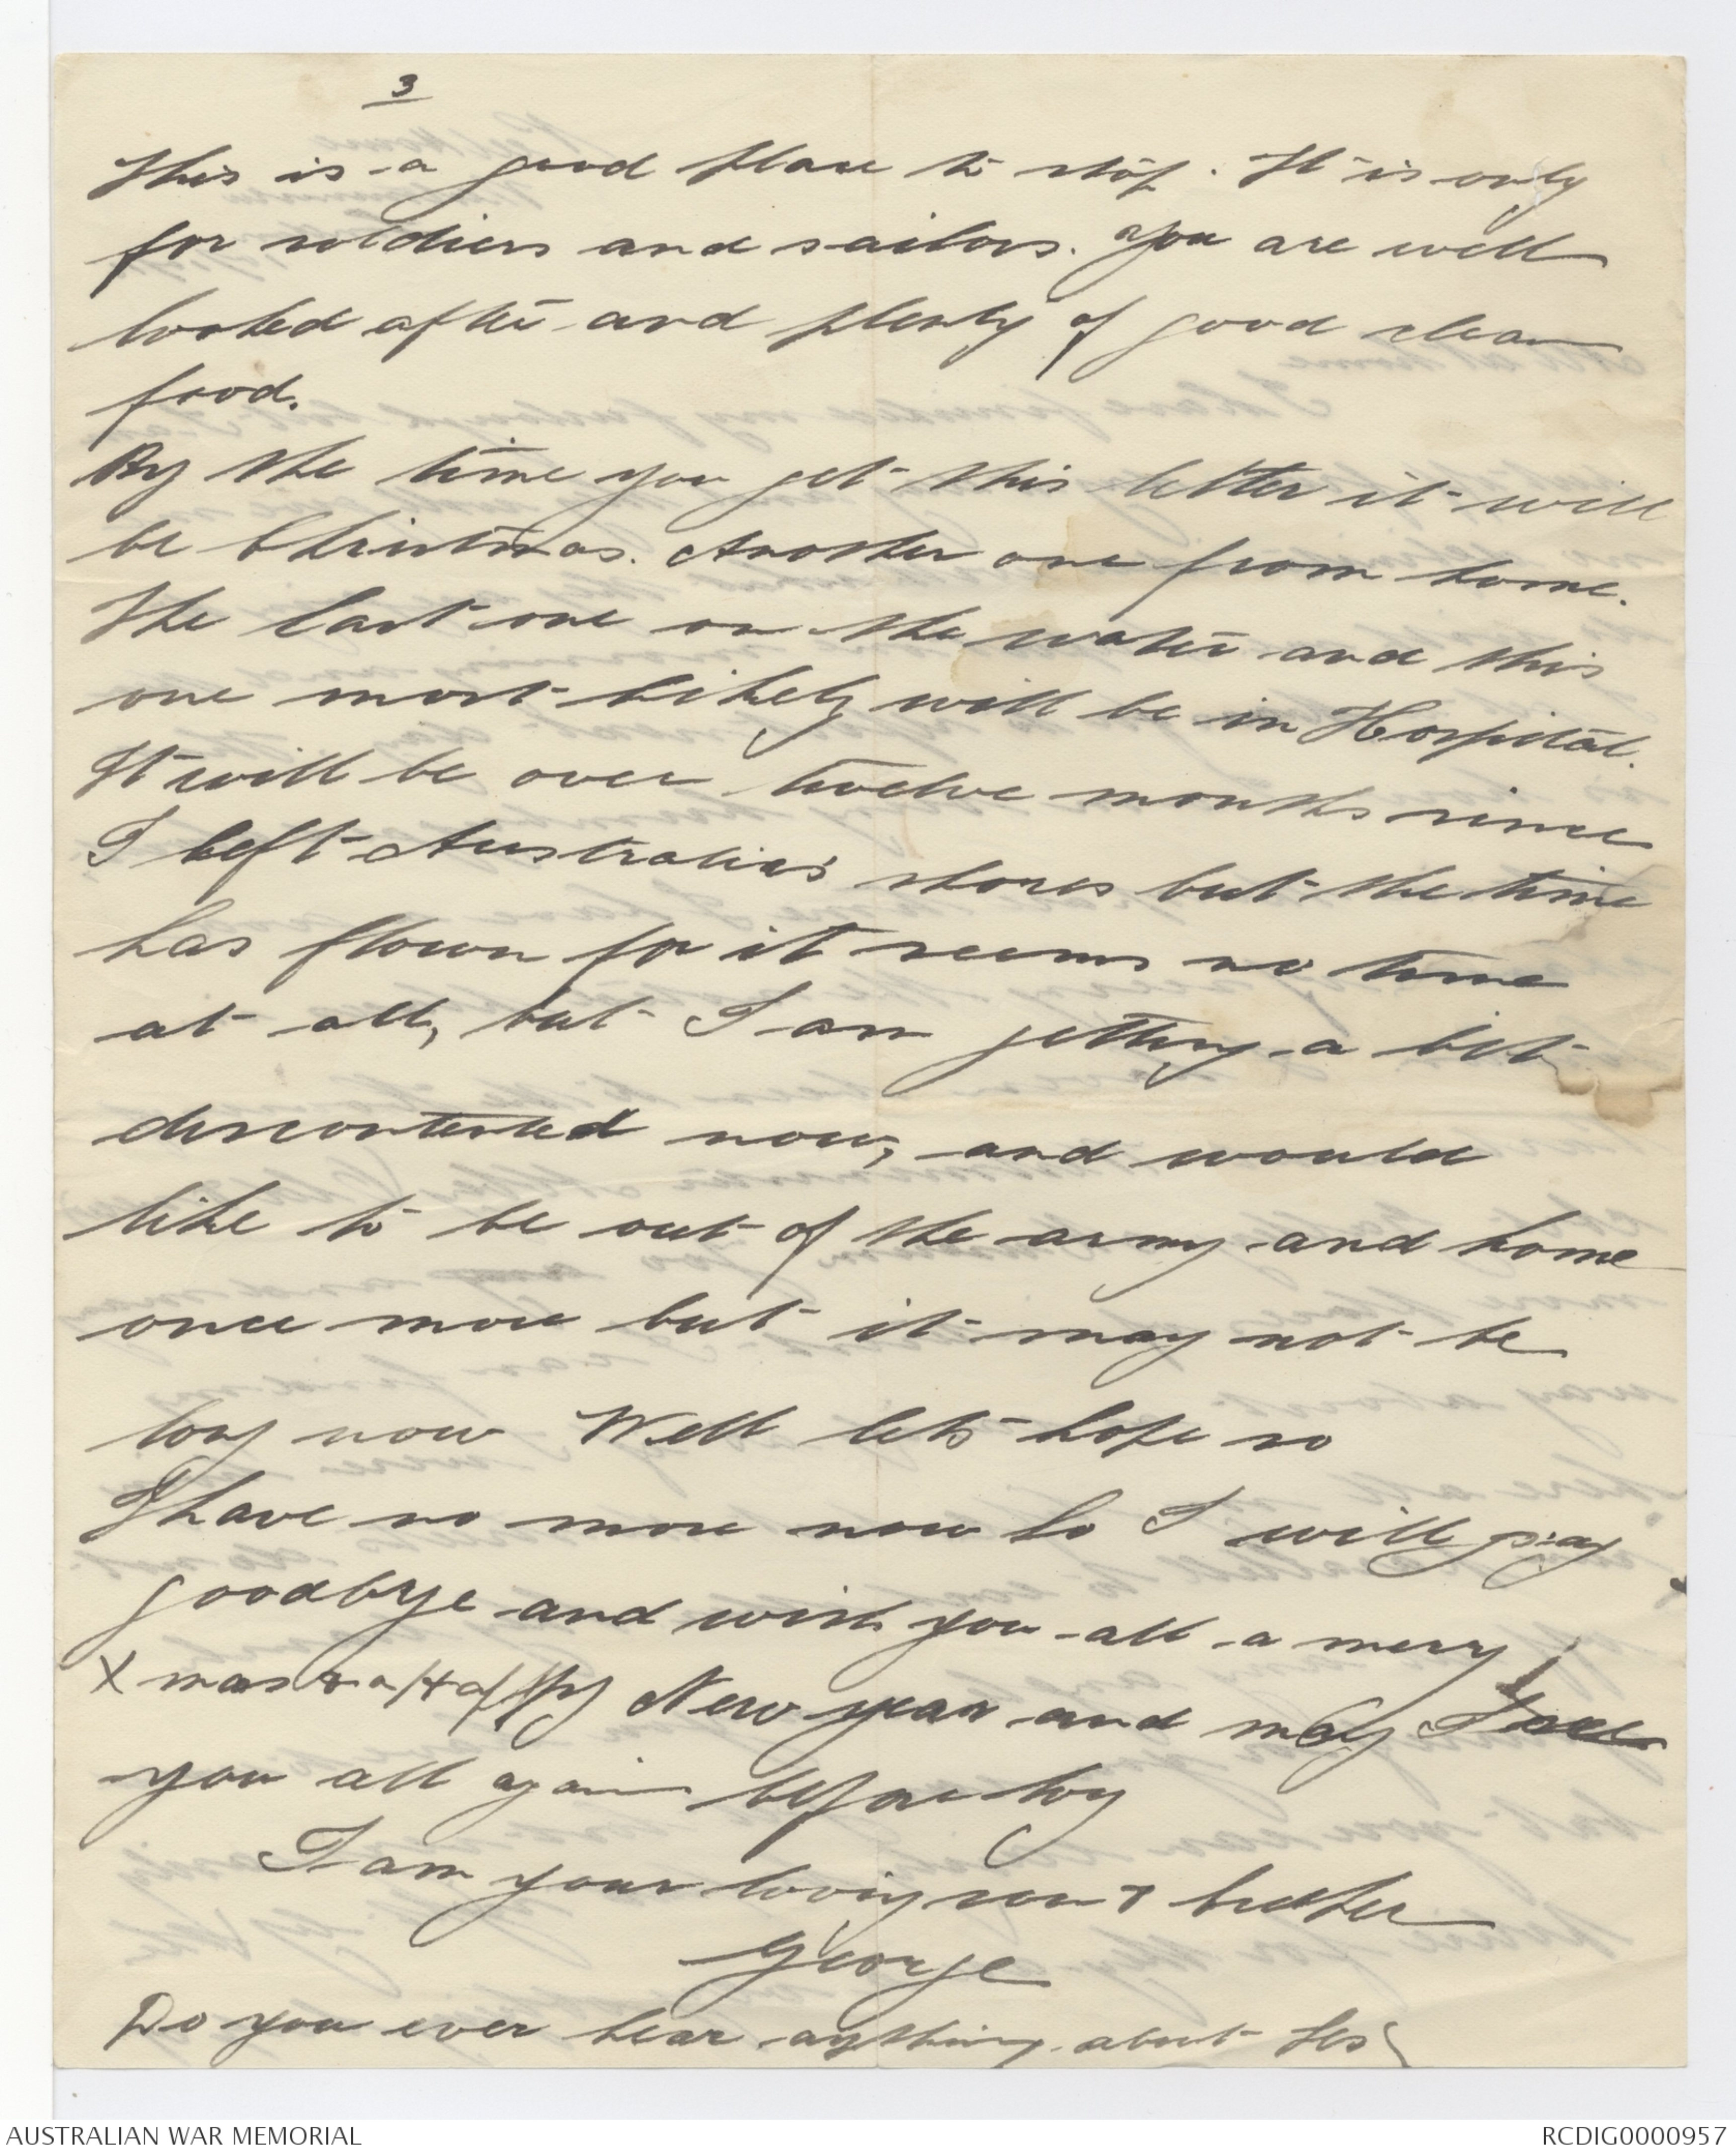 3
This is a good place to stop. It is only
for soldiers and sailors. You are well
looked after and plenty of good clean
food.
By the time you get this letter it will
be Christmas. Another one from home.
The last one on the water and this
one most likely will be in Hospital.
It will be over twelve months since
I left Australia's shores but the time
has flown for it seems no time
at all, but I am getting a bit
discontented now, and would
like to be out of the army and home
once more but it may not be
long now Well lets hope so
I have no more now so I will say
goodbye and wish you all a merry
Xmas & a Happy New year and may I see
you all again before long
I am your loving son & brother
George
Do you ever hear anything about
AUSTRALIAN WAR MEMORIAL
RCDIG0000957